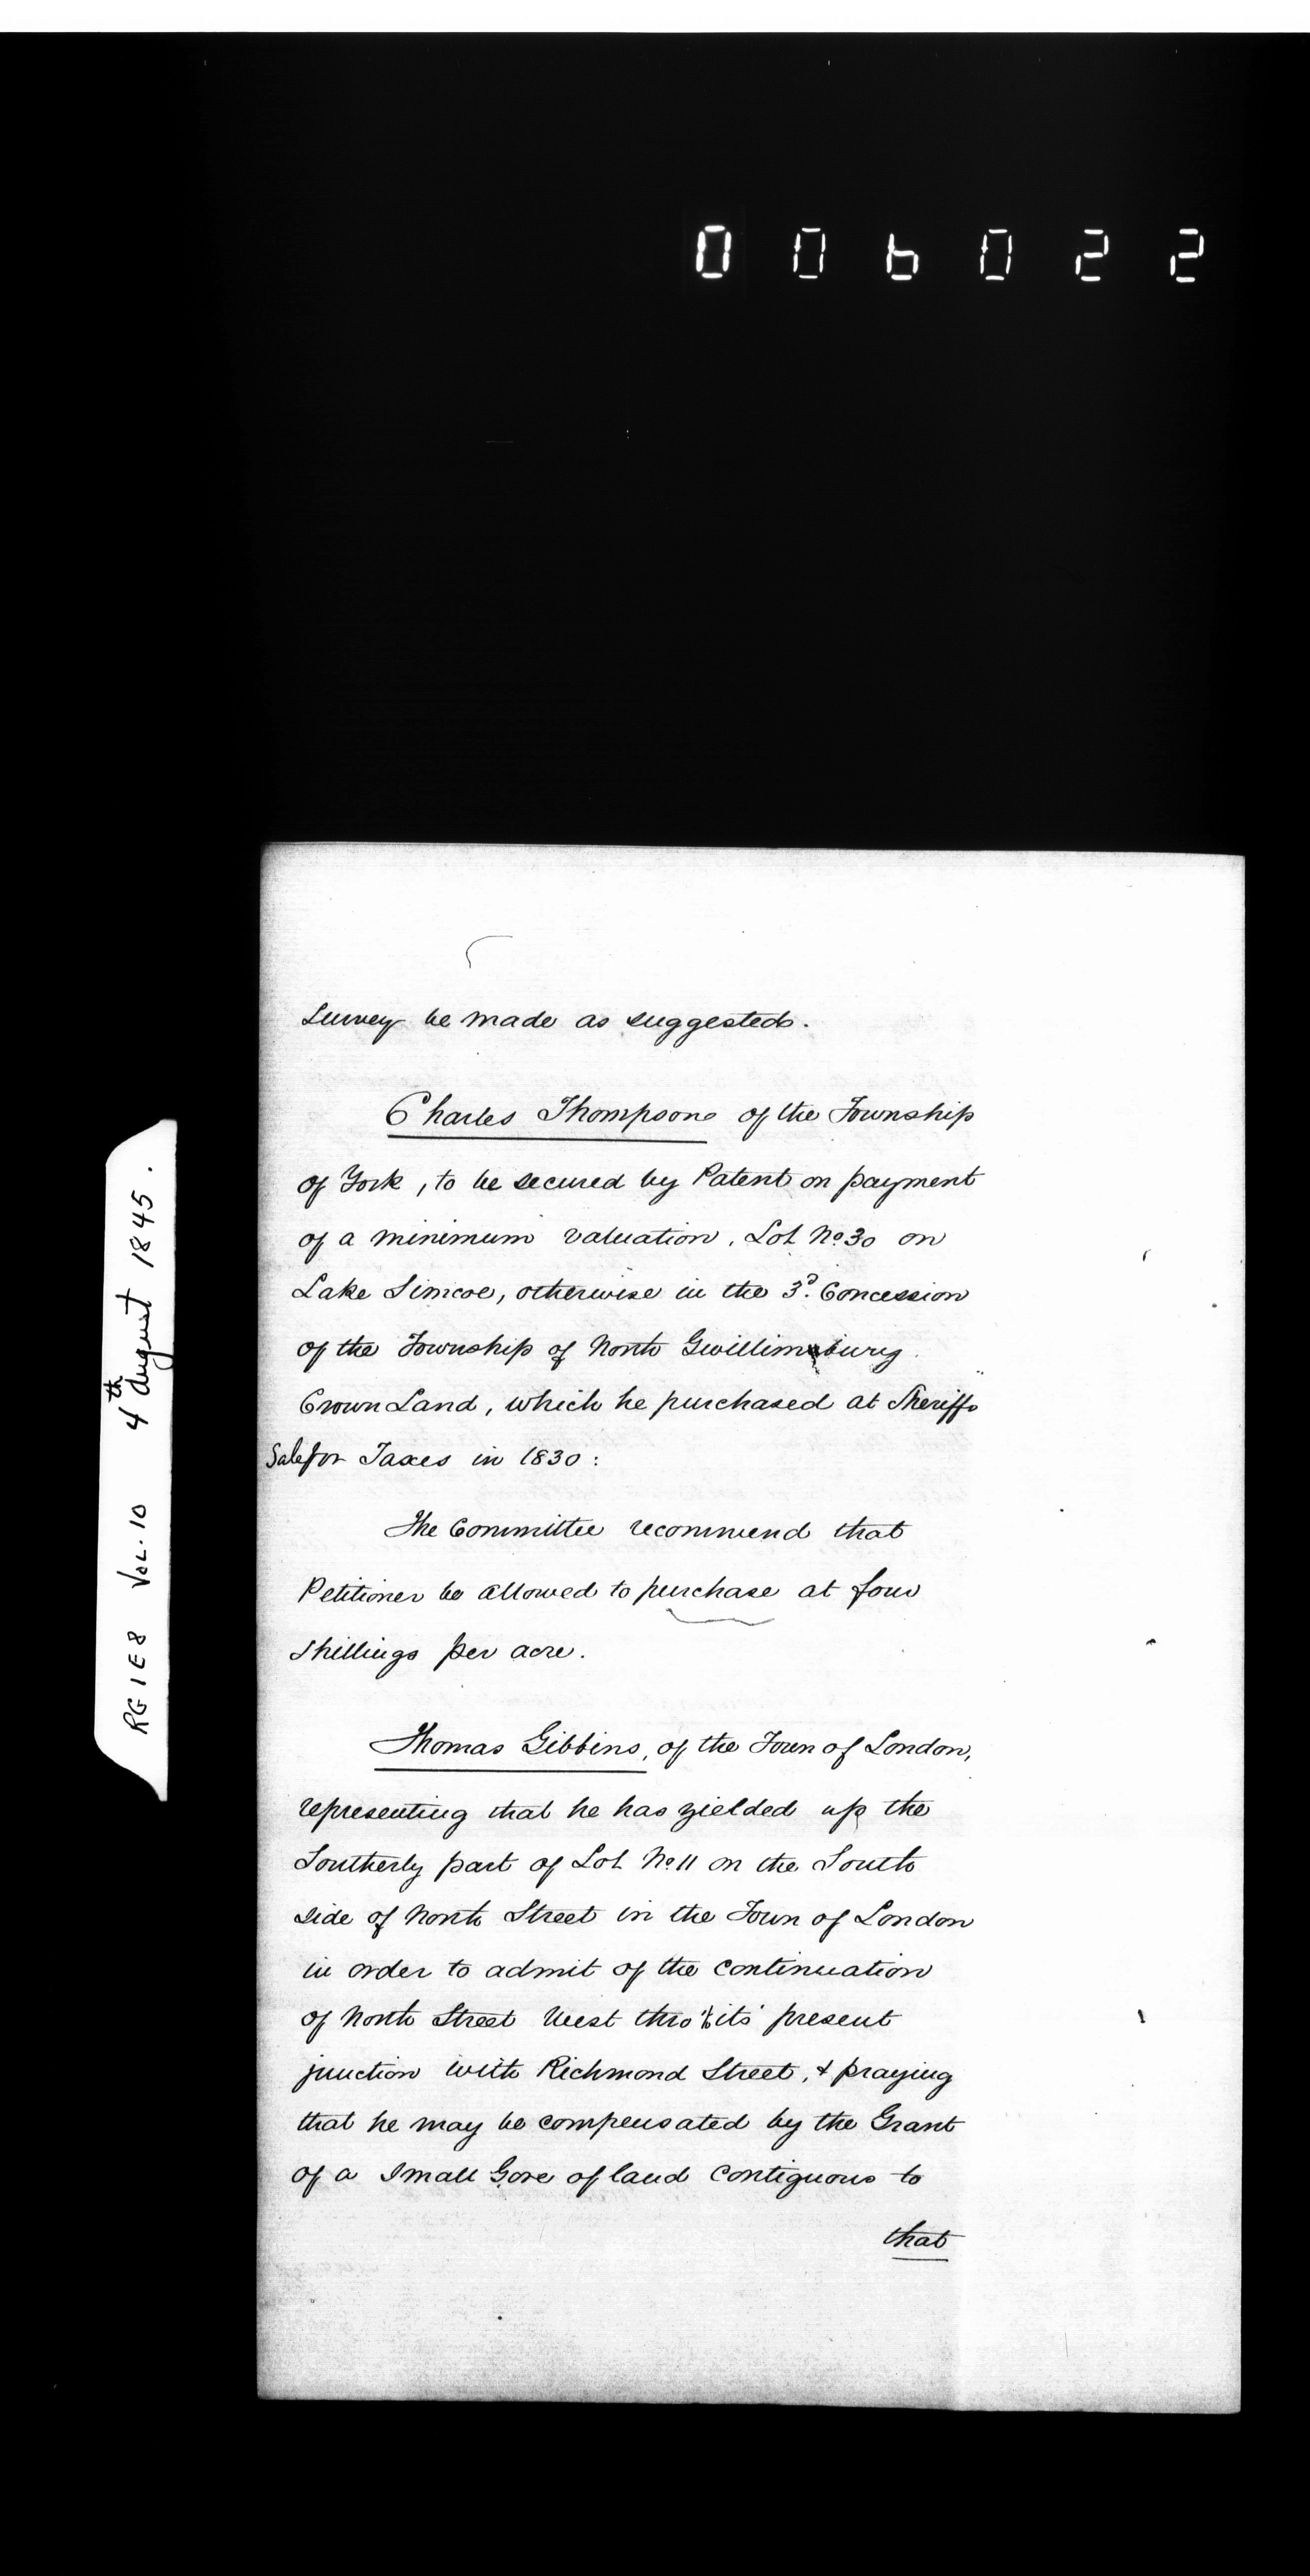 006022
RG 1 E8 Vol. 10 4th August 1845.
Survey be made as suggested.
Charles Thompson of the Township
of York, to be secured by Patent on payment
of a minimum valuation, Lot No 30 on
Lake Simcoe, otherwise in the 3d. Concession
of the Township of North Gwillimbury
Crown Land, which he purchased at Sheriffs
Sale for Taxes in 1830:
The Committee recommend that
Petitioner be allowed to purchase at four
Shillings per acre.
Thomas Gibbins, of the Town of London,
representing that he has yielded up the
Southerly part of Lot No 11 on the South
side of North Street in the Town of London
in order to admit of the continuation
of North Street West thro' its present
junction with Richmond Street, & praying
that he may be compensated by the Grant
of a Small Gore of land contiguous to
that